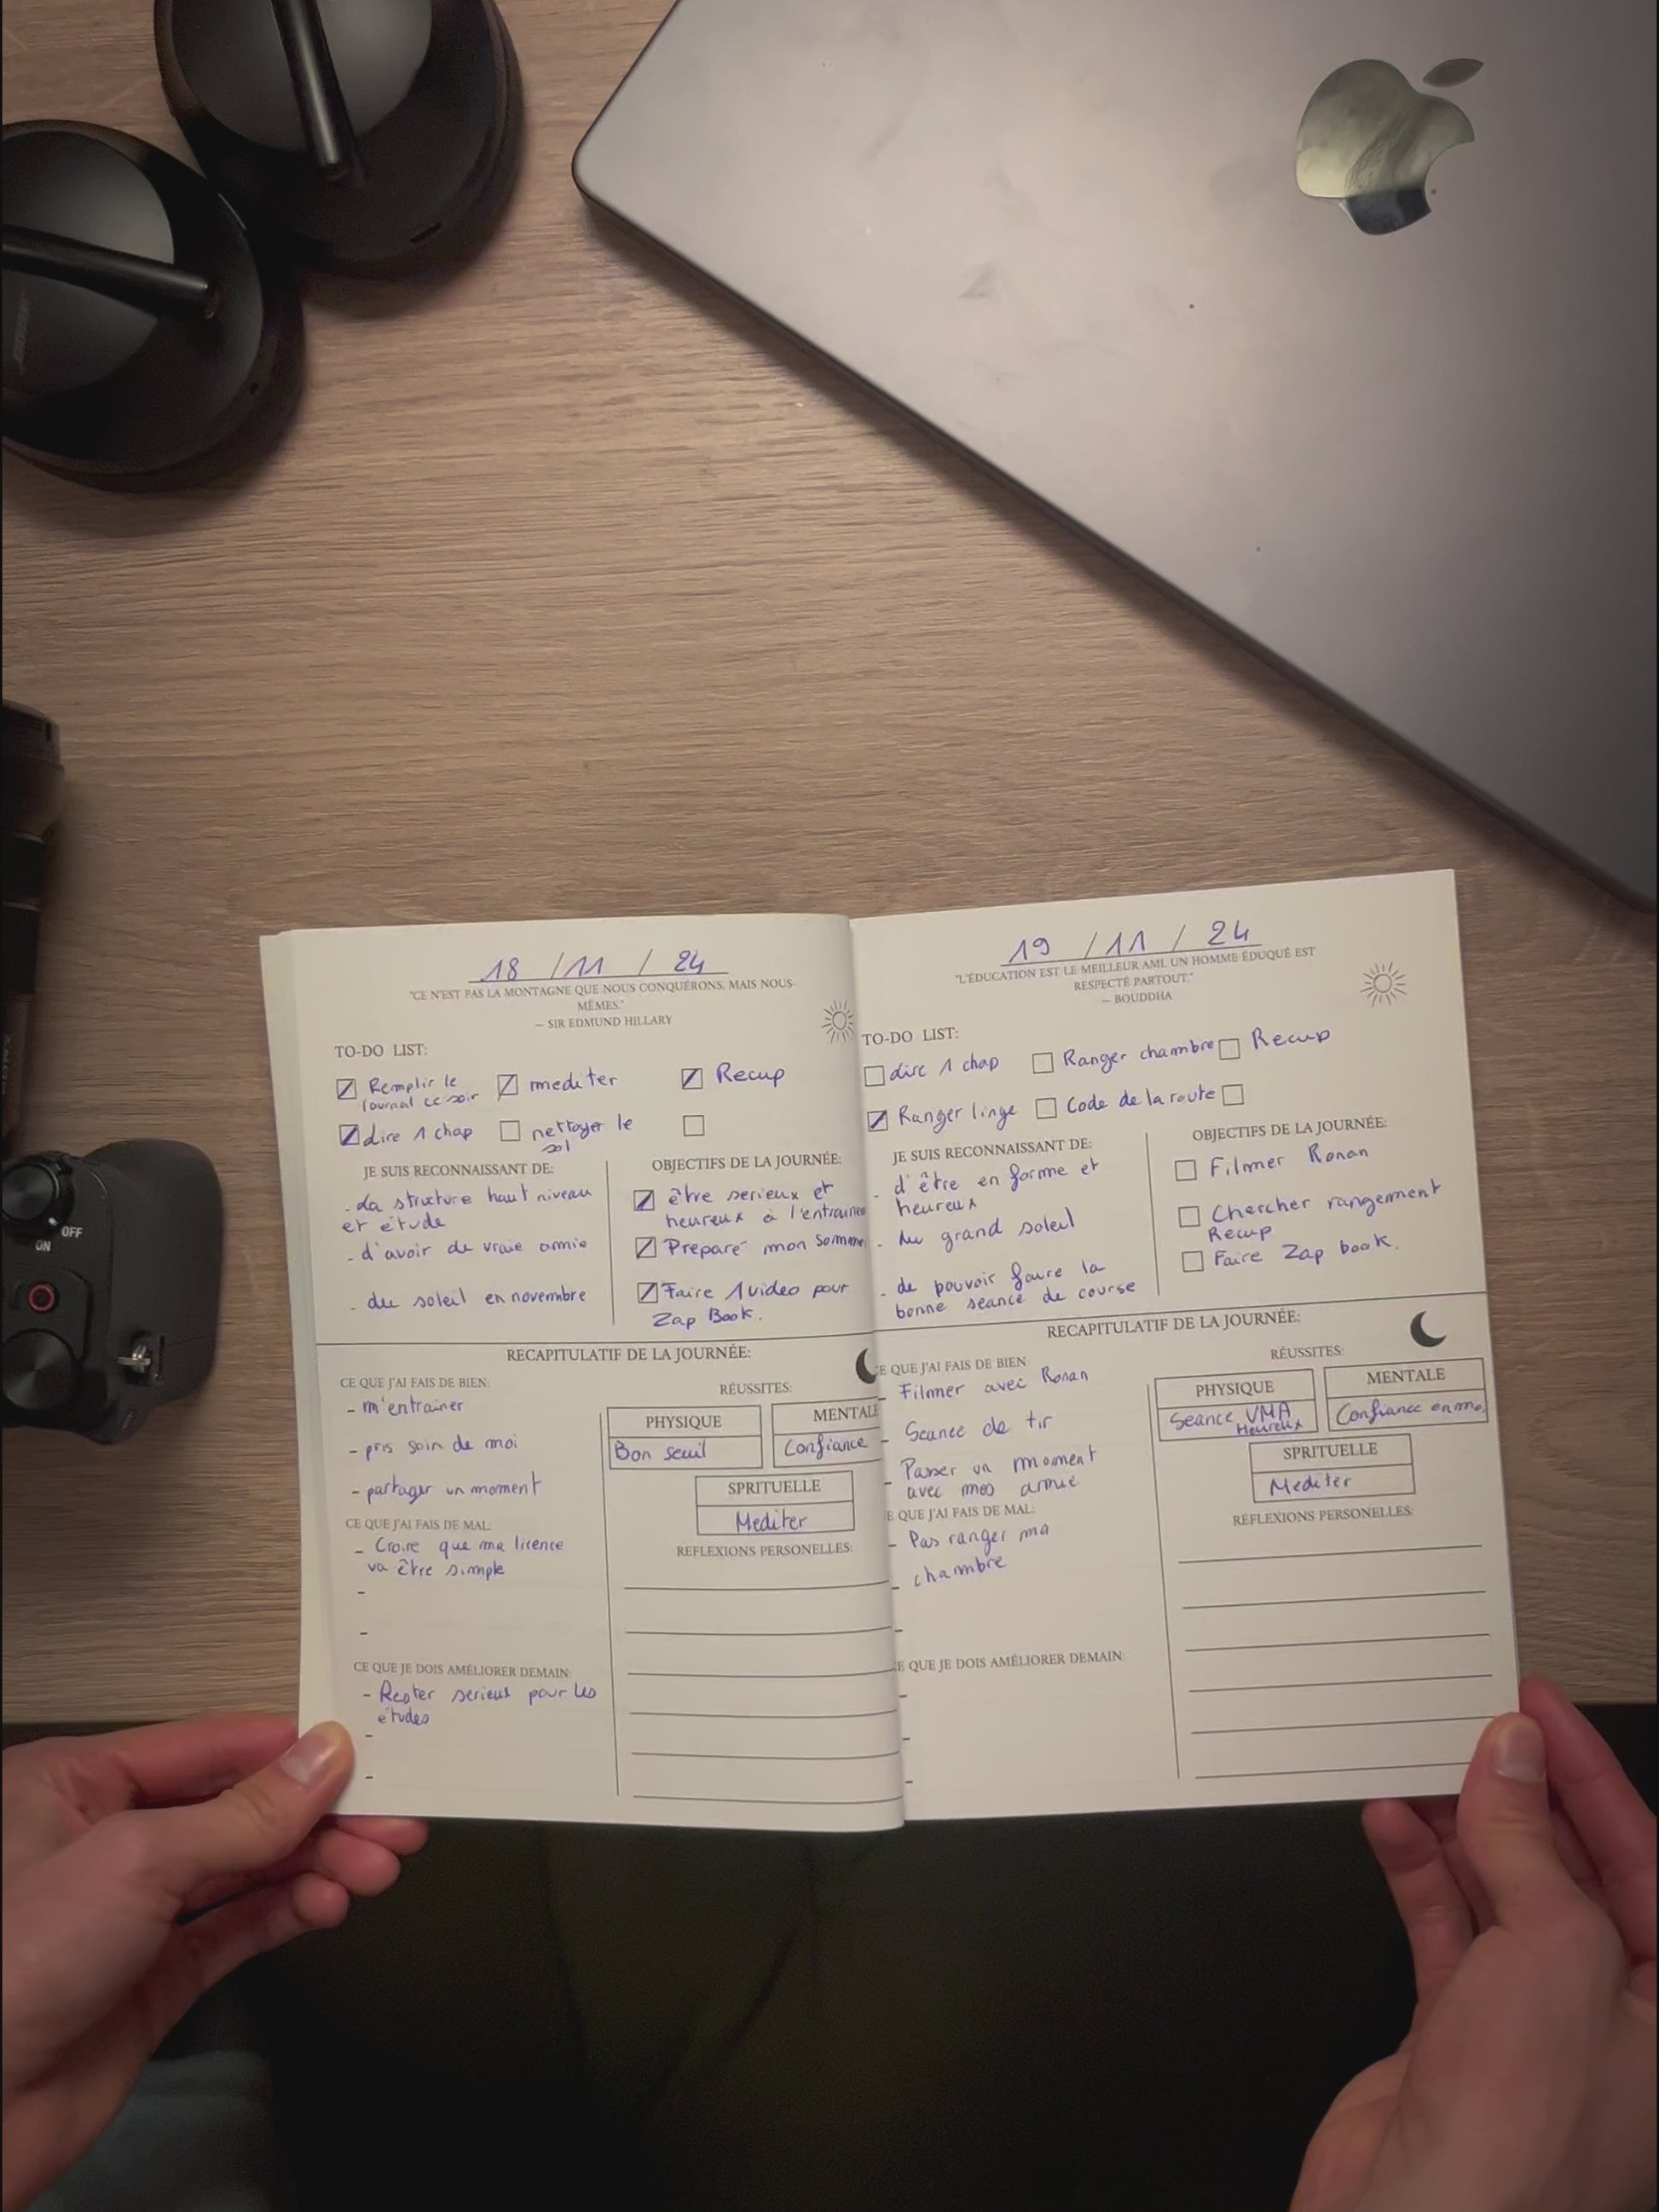 18 / 11 / 24
"CE N'EST PAS LA MONTAGNE QUE NOUS CONQUÉRONS, MAIS NOUS-
MÊMES."
– SIR EDMUND HILLARY
TO-DO LIST:
Remplir le
journal ce soir
mediter
Recup
Lire 1 chap
nettoyer le
sol
JE SUIS RECONNAISSANT DE:
- La structure haut niveau
et étude
- d'avoir de vraie amie
- du soleil en novembre
OBJECTIFS DE LA JOURNÉE:
être serieux et
heureux à l'entraine
Preparé mon somme
Faire 1 video pour
Zap Book.
RECAPITULATIF DE LA JOURNÉE:
CE QUE J'AI FAIS DE BIEN:
- m'entrainer
- pris soin de moi
- partager un moment
CE QUE J'AI FAIS DE MAL:
- Croire que ma licence
va être simple
-
-
CE QUE JE DOIS AMÉLIORER DEMAIN:
- Rester serieux pour les
études
-
-
RÉUSSITES:
PHYSIQUE
Bon seuil
MENTALE
Confiance
SPRITUELLE
Mediter
REFLEXIONS PERSONELLES:
19 / 11 / 24
"L'ÉDUCATION EST LE MEILLEUR AMI. UN HOMME ÉDUQUÉ EST
RESPECTÉ PARTOUT."
– BOUDDHA
TO-DO LIST:
dire 1 chap
Ranger chambre
Recup
Ranger linge
Code de la route
JE SUIS RECONNAISSANT DE:
- d'être en forme et
heureux
- du grand soleil
- de pouvoir faire la
bonne seance de course
OBJECTIFS DE LA JOURNÉE:
Filmer Ronan
Chercher rangement
Recup
Faire Zap book.
RECAPITULATIF DE LA JOURNÉE:
E QUE J'AI FAIS DE BIEN:
- Filmer avec Ronan
- Seance de tir
- Passer un moment
avec mes amie
E QUE J'AI FAIS DE MAL:
- Pas ranger ma
- chambre
-
E QUE JE DOIS AMÉLIORER DEMAIN:
-
-
-
RÉUSSITES:
PHYSIQUE
Seance VMA
Heureux
MENTALE
Confiance en mo
SPRITUELLE
Mediter
REFLEXIONS PERSONELLES:
OFF
ON